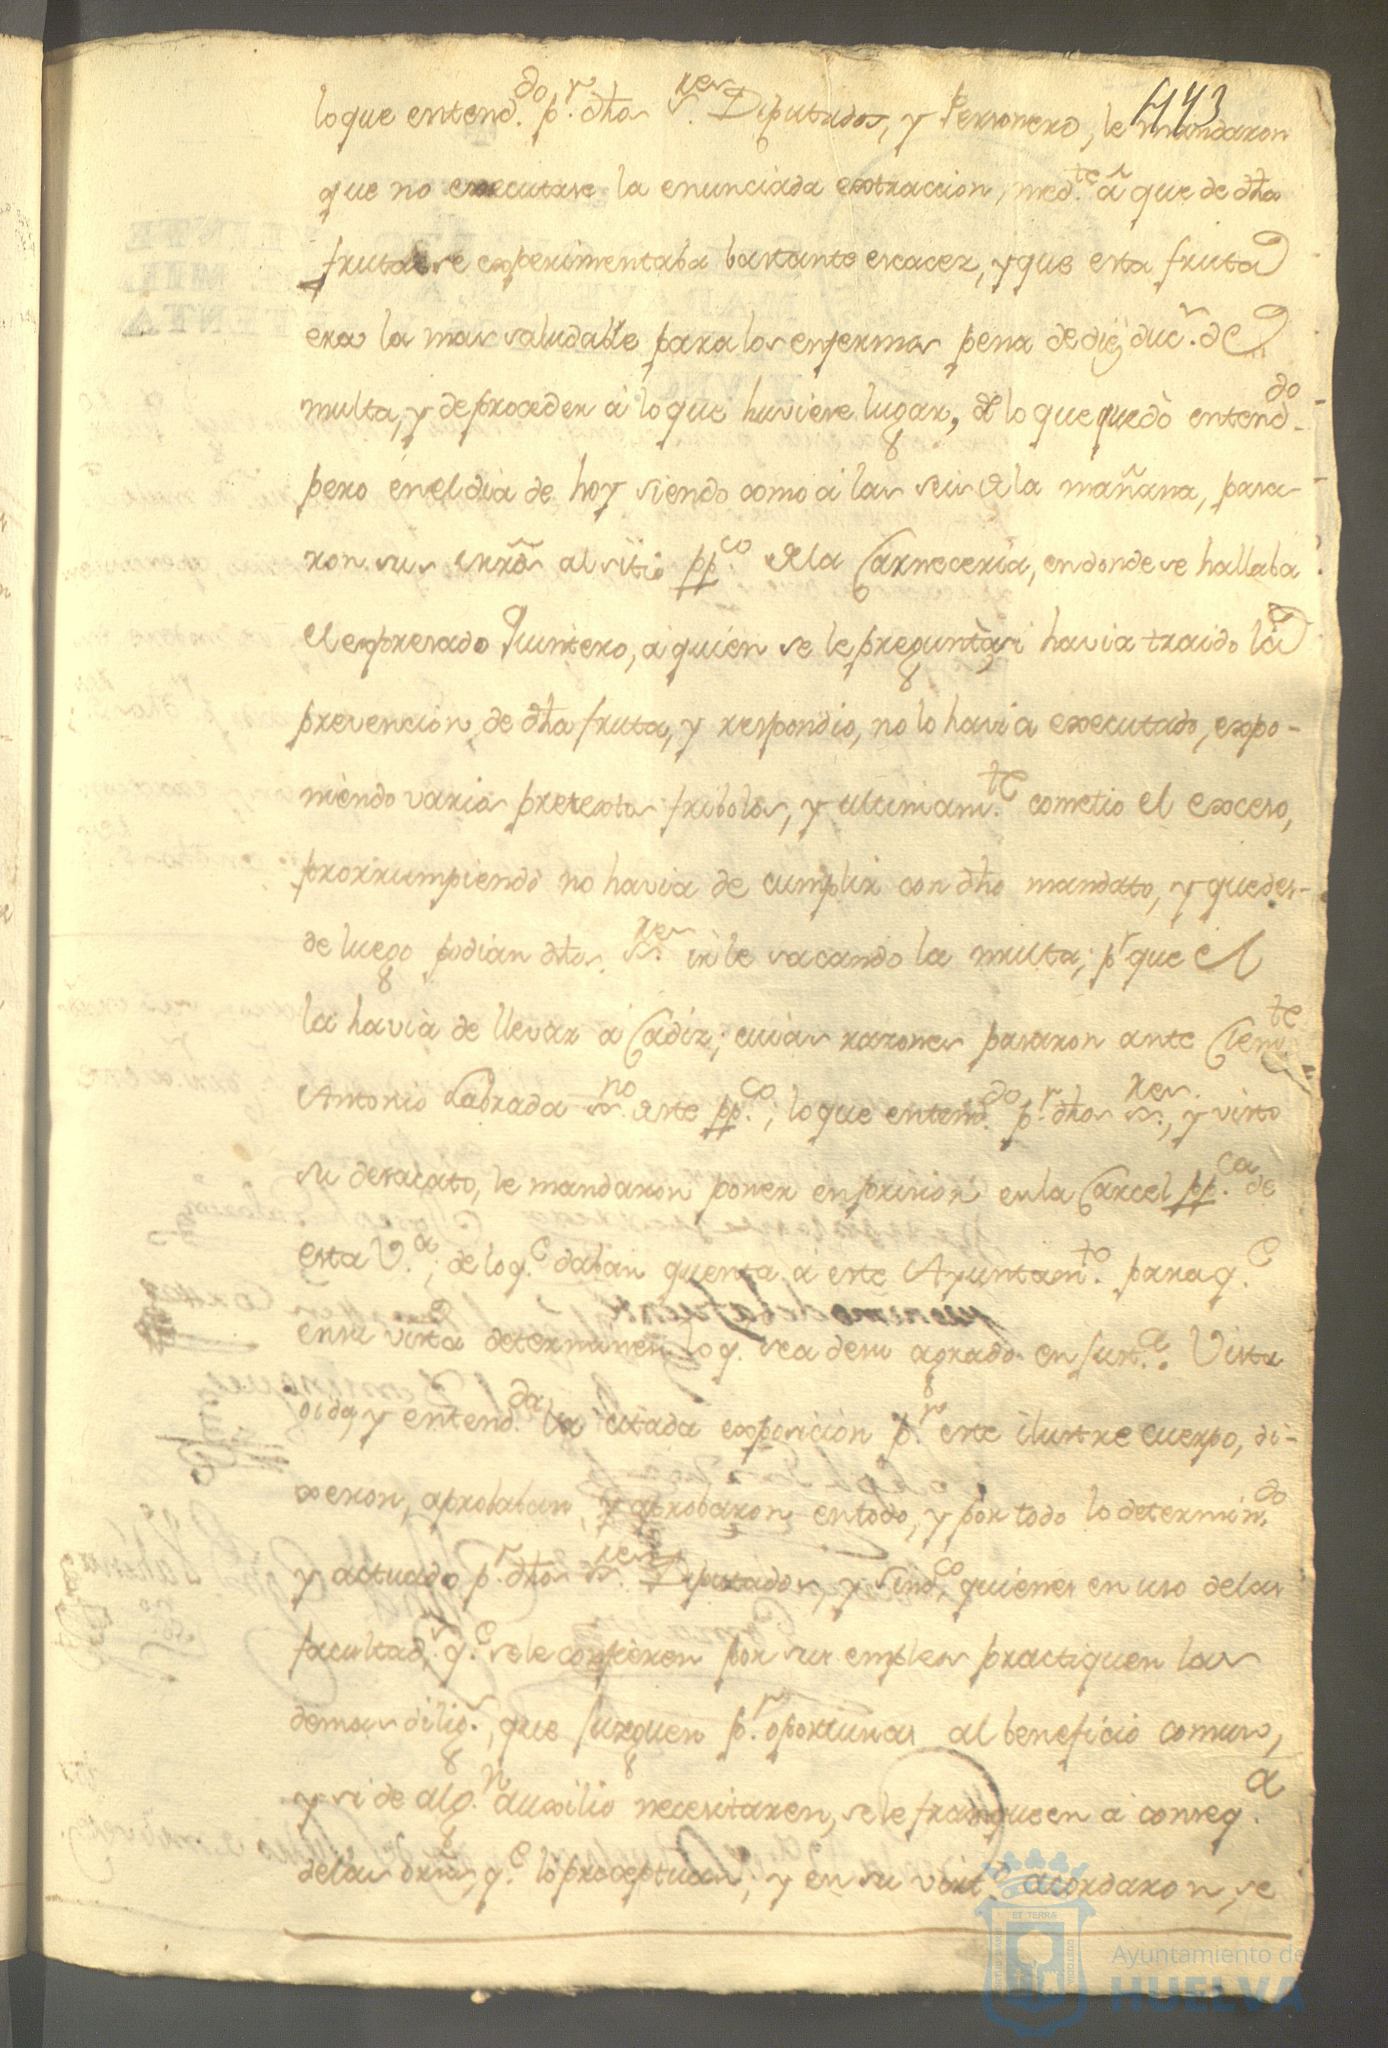 443
lo que entend.do p.r dhos s.res Diputados, y Personero, le mandaron
que no executase la enunciada extraccion, med.te â que de dha
fruta se experimentaba bastante escacez, y que esta fruta
era la mas saludable para los enfermos pena de diez duc.s de
multa, y de proceder à lo que huviere lugar, de lo que quedò entend.do
pero en el dia de hoy siendo como a las seis de la mañana, pasa
ron sus mrds al sitio pp.co de la Carneceria, en donde se hallaba
el expresado Quintero, a quien se le preguntò si havia traido la
prevencion de dha fruta, y respondio, no lo havia executado, expo-
niendo varios pretextos fribolos, y ultimam.te cometio el exceso,
prorrumpiendo no havia de cumplir con dho mandato, y que des-
de luego podian dhos s.res irle sacando la multa; p.r que el
la havia de llevar a Cadiz; cuias razones pasaron ante Clem.te
Antonio Labrada ss.no de este pp.co; lo que entend.do p.r dhos s.res, y visto
su desacato, le mandaron poner en prision en la Carcel pp.ca de
esta V.a; de lo q.e daban quenta à este Ayuntam.to para q.e
en su vista determinen lo q.e sea de su agrado en just.a. Vista
oida, y entend.da la citada exposicion p.r este ilustre cuerpo, di-
xeron, aprobaban, y aprobaron en todo, y por todo lo determin.do
y actuado p.r dhos s.res Diputados, y Sind.co, quienes en uso de las
facultad.s q.e se le confieren por sus empleos practiquen las
demas dilig.s, que juzguen p.r oportunas al beneficio comun,
y si de alg.n auxilio necesitaren, se le franqueen a conseq.a
de las orns q.e lo preceptuan; y en su virt.d acordaron, se
ET TERRÆ
Ayuntamiento de
HUELVA